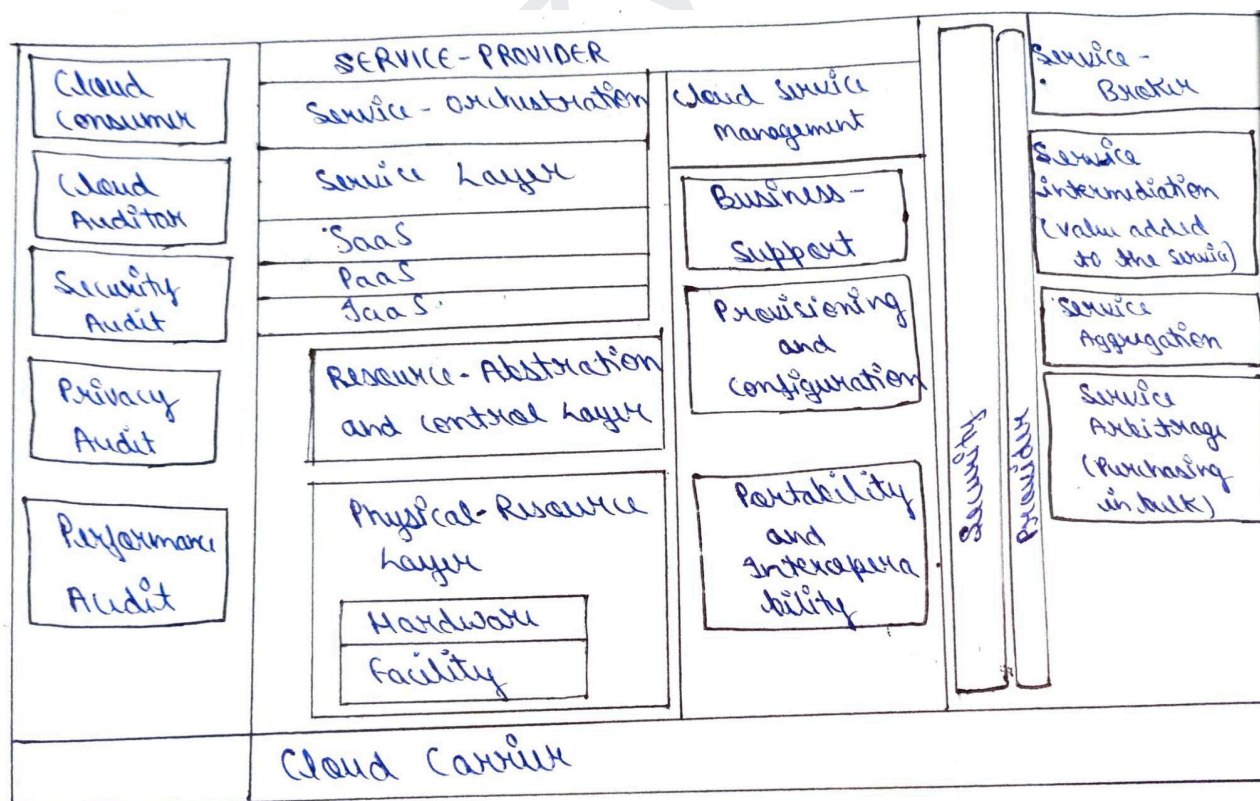 Cloud
Consumer
Cloud
Auditor
Security
Audit
Privacy
Audit
Performance
Audit
SERVICE-PROVIDER
Service-orchestration
Service Layer
SaaS
PaaS
IaaS
Resource-Abstration
and control Layer
Physical-Resource
Layer
Hardware
Facility
Cloud Service
Management
Business-
Support
Provisioning
and
Configuration
Portability
and
Interopera
bility
Security
Provider
Service-
Broker
Service
intermediation
(value added
to the service)
Service
Aggregation
Service
Arbitrage
(Purchasing
in bulk)
Cloud Carrier